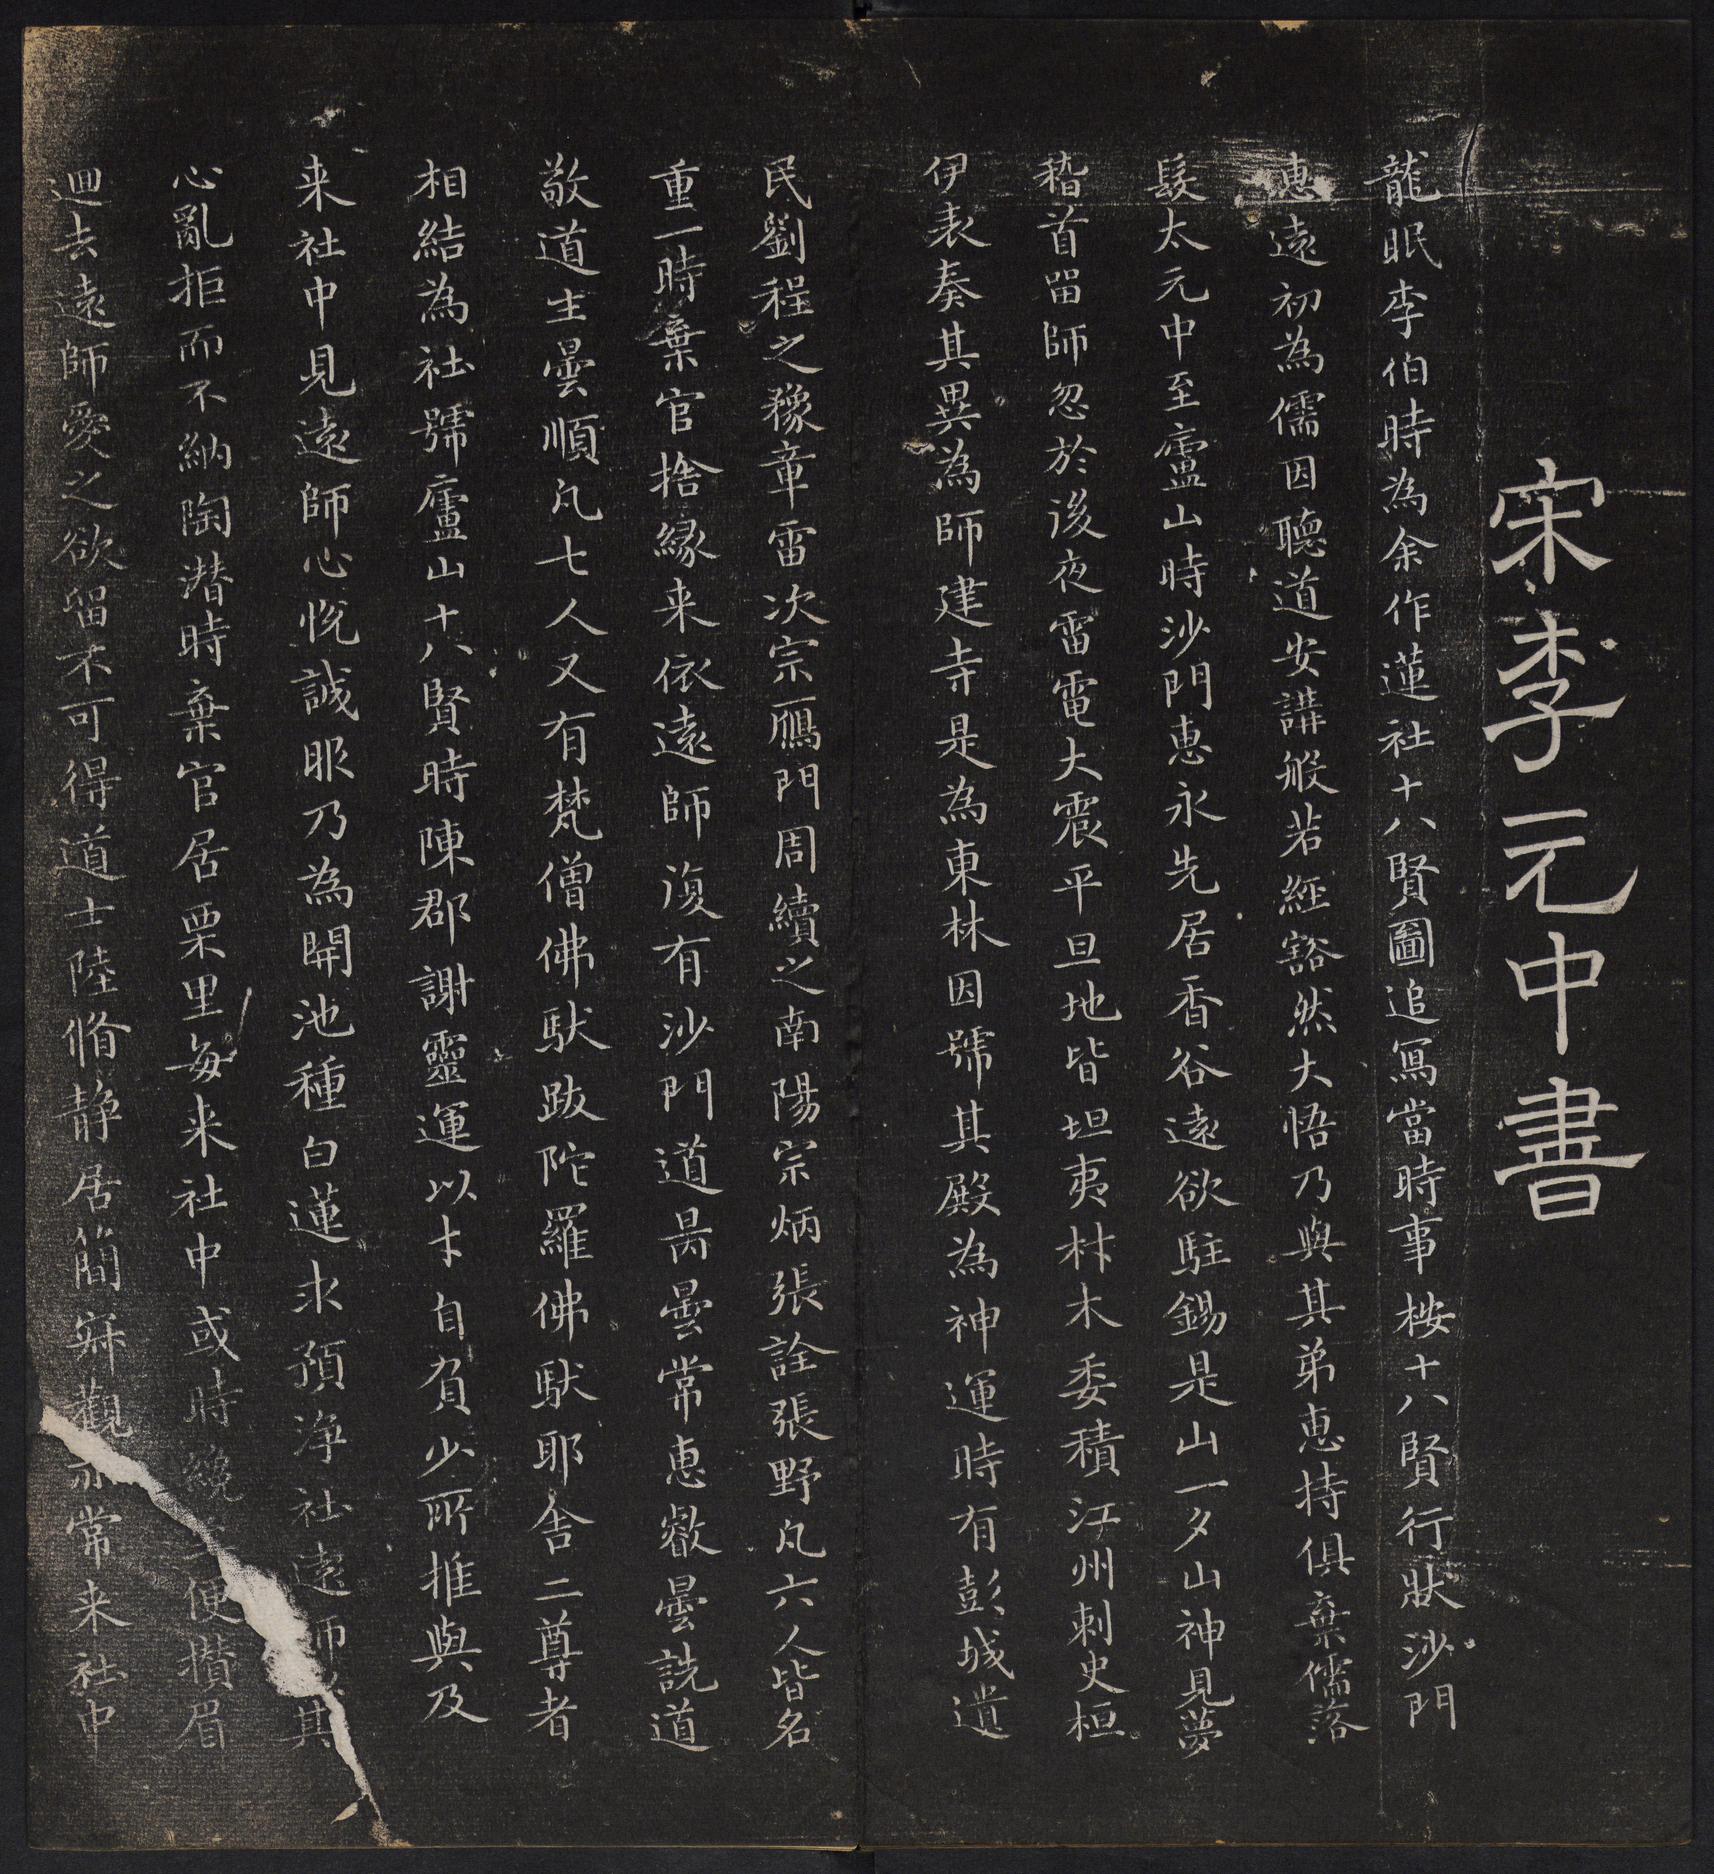 宋李元中書
龍眠李伯時為余作蓮社十八賢圖追寫當時事桉十八賢行狀沙門
惠遠初為儒因聽道安講般若經豁然大悟乃與其弟惠持俱棄儒落
髮太元中至廬山時沙門惠永先居香谷遠欲駐錫是山一夕山神見夢
稽首留師忽於後夜雷電大震平旦地皆坦夷林木委積江州刺史桓
伊表奏其異為師建寺是為東林因號其殿為神運時有彭城遺
民劉程之豫章雷次宗鴈門周續之南陽宗炳張詮張野凡六人皆名
重一時棄官捨緣来依遠師復有沙門道昺曇常惠叡曇詵道
敬道生曇順凡七人又有梵僧佛馱跋陀羅佛馱耶舍二尊者
相結為社號廬山十八賢時陳郡謝靈運以才自負少所推與及
来社中見遠師心悅誠服乃為開池種白蓮求預淨社遠師其
心亂拒而不納陶潛時棄官居栗里每来社中或時纔便攢眉
迴去遠師愛之欲留不可得道士陸脩静居簡寂觀亦常来社中